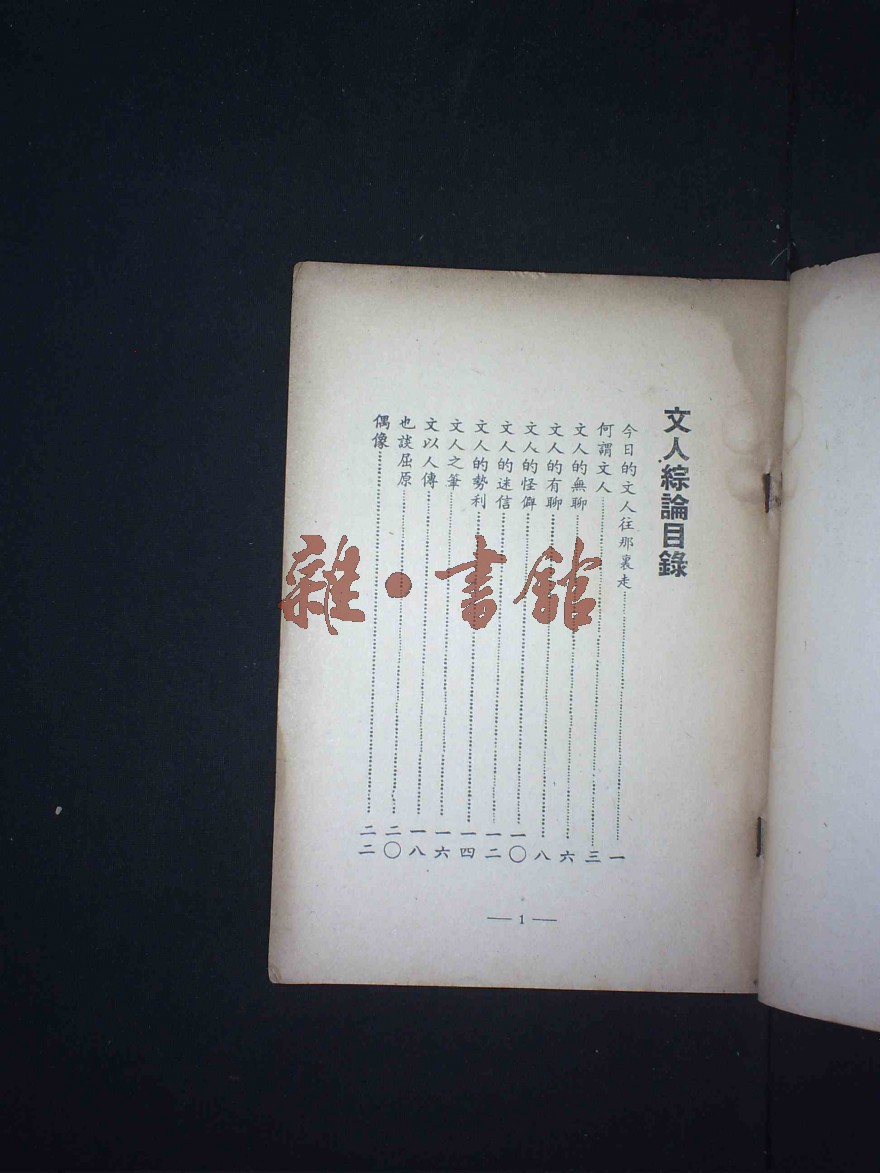 文人綜論目錄
今日的文人往那裏走……一
何謂文人……三
文人的無聊……六
文人的有聊……八
文人的怪僻……一〇
文人的迷信……一二
文人的勢利……一四
文人之筆……一六
文以人傳……一八
也談屈原……二〇
偶像……二二
— 1 —
雜·書館